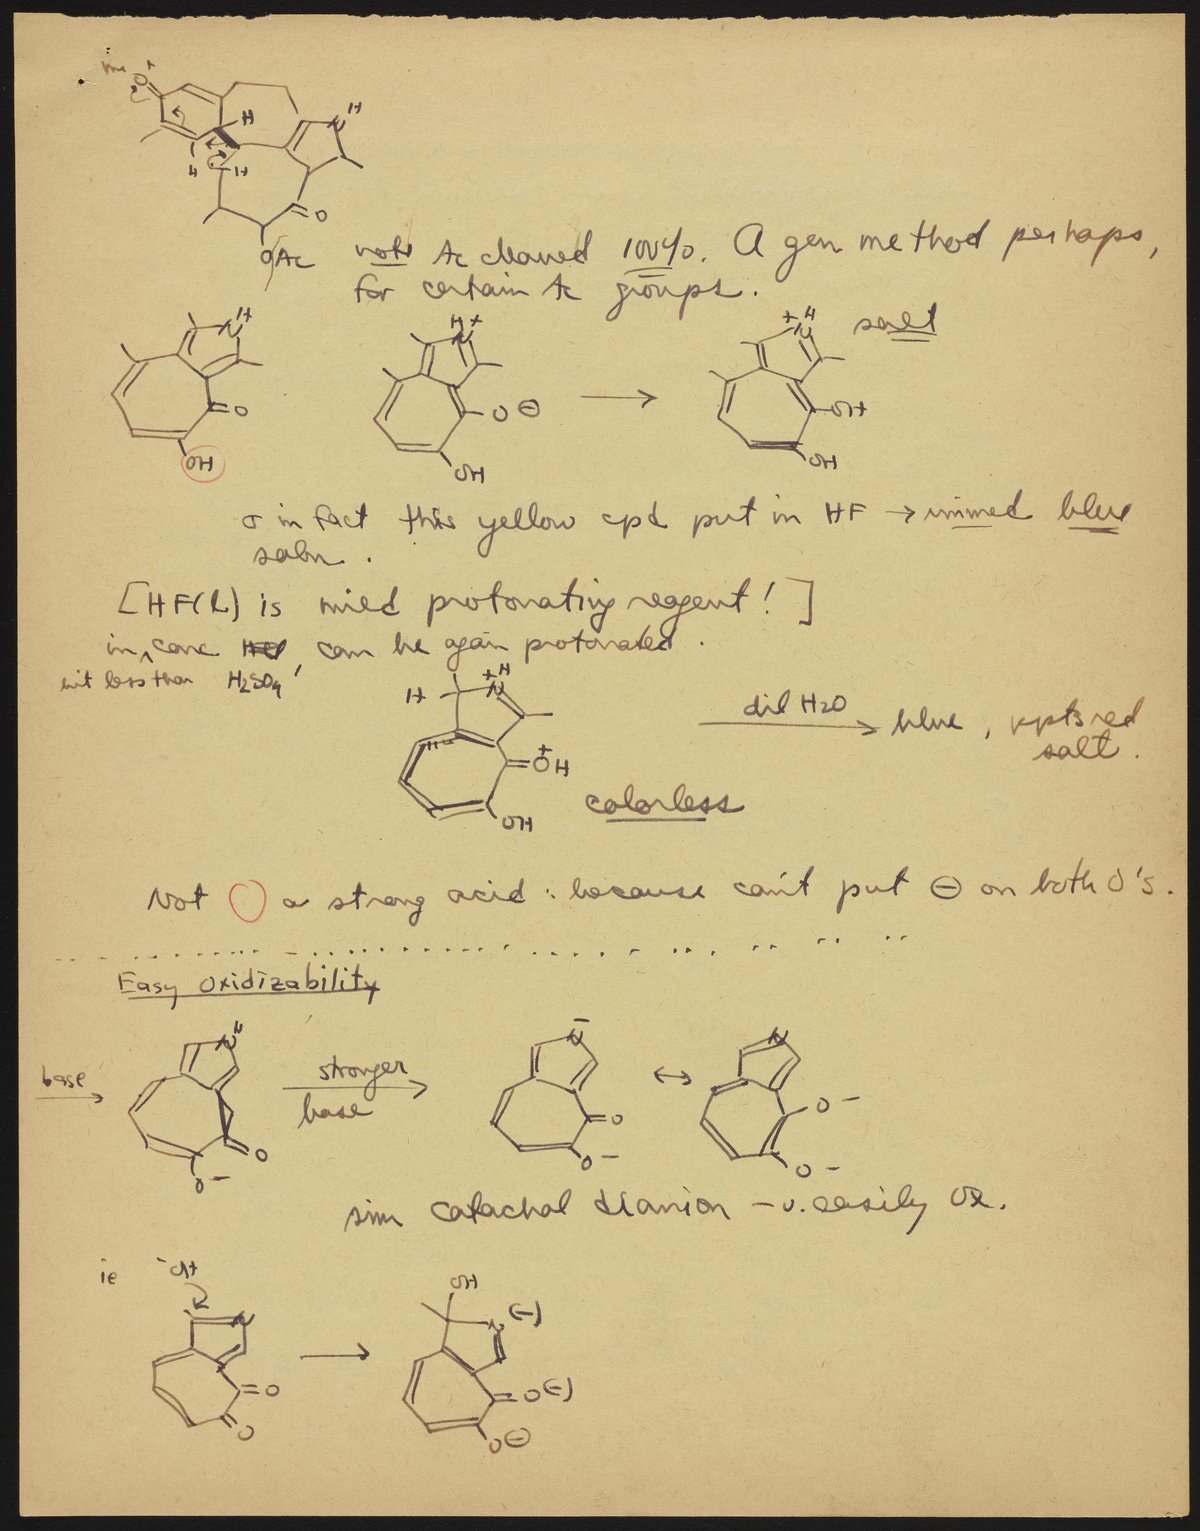 me
O+
H
N H
4
H
O
OAc
note Ac cleaved 100%. A gen method perhaps,
for certain Ac groups.
N H
O
OH
H +
N
O ⊖
OH
→
+ N H
salt
OH
OH
in fact this yellow cpd put in HF → immed blue
soln.
[HF(l) is mild protonating reagent!]
in conc can be again protonated.
but less than H2SO4
H
+ N H
O+ H
OH
colorless
dil H2O → blue, pptsred
salt.
Not a strong acid: because can't put ⊖ on both O's.
Easy Oxidizability
base →
N H
O
O −
stronger
base
N −
O
O −
↔
N
O −
O −
sim catachol dianion − v. easily Ox.
ie
−OH
N
O
O
→
OH
N (−)
O(−)
O⊖